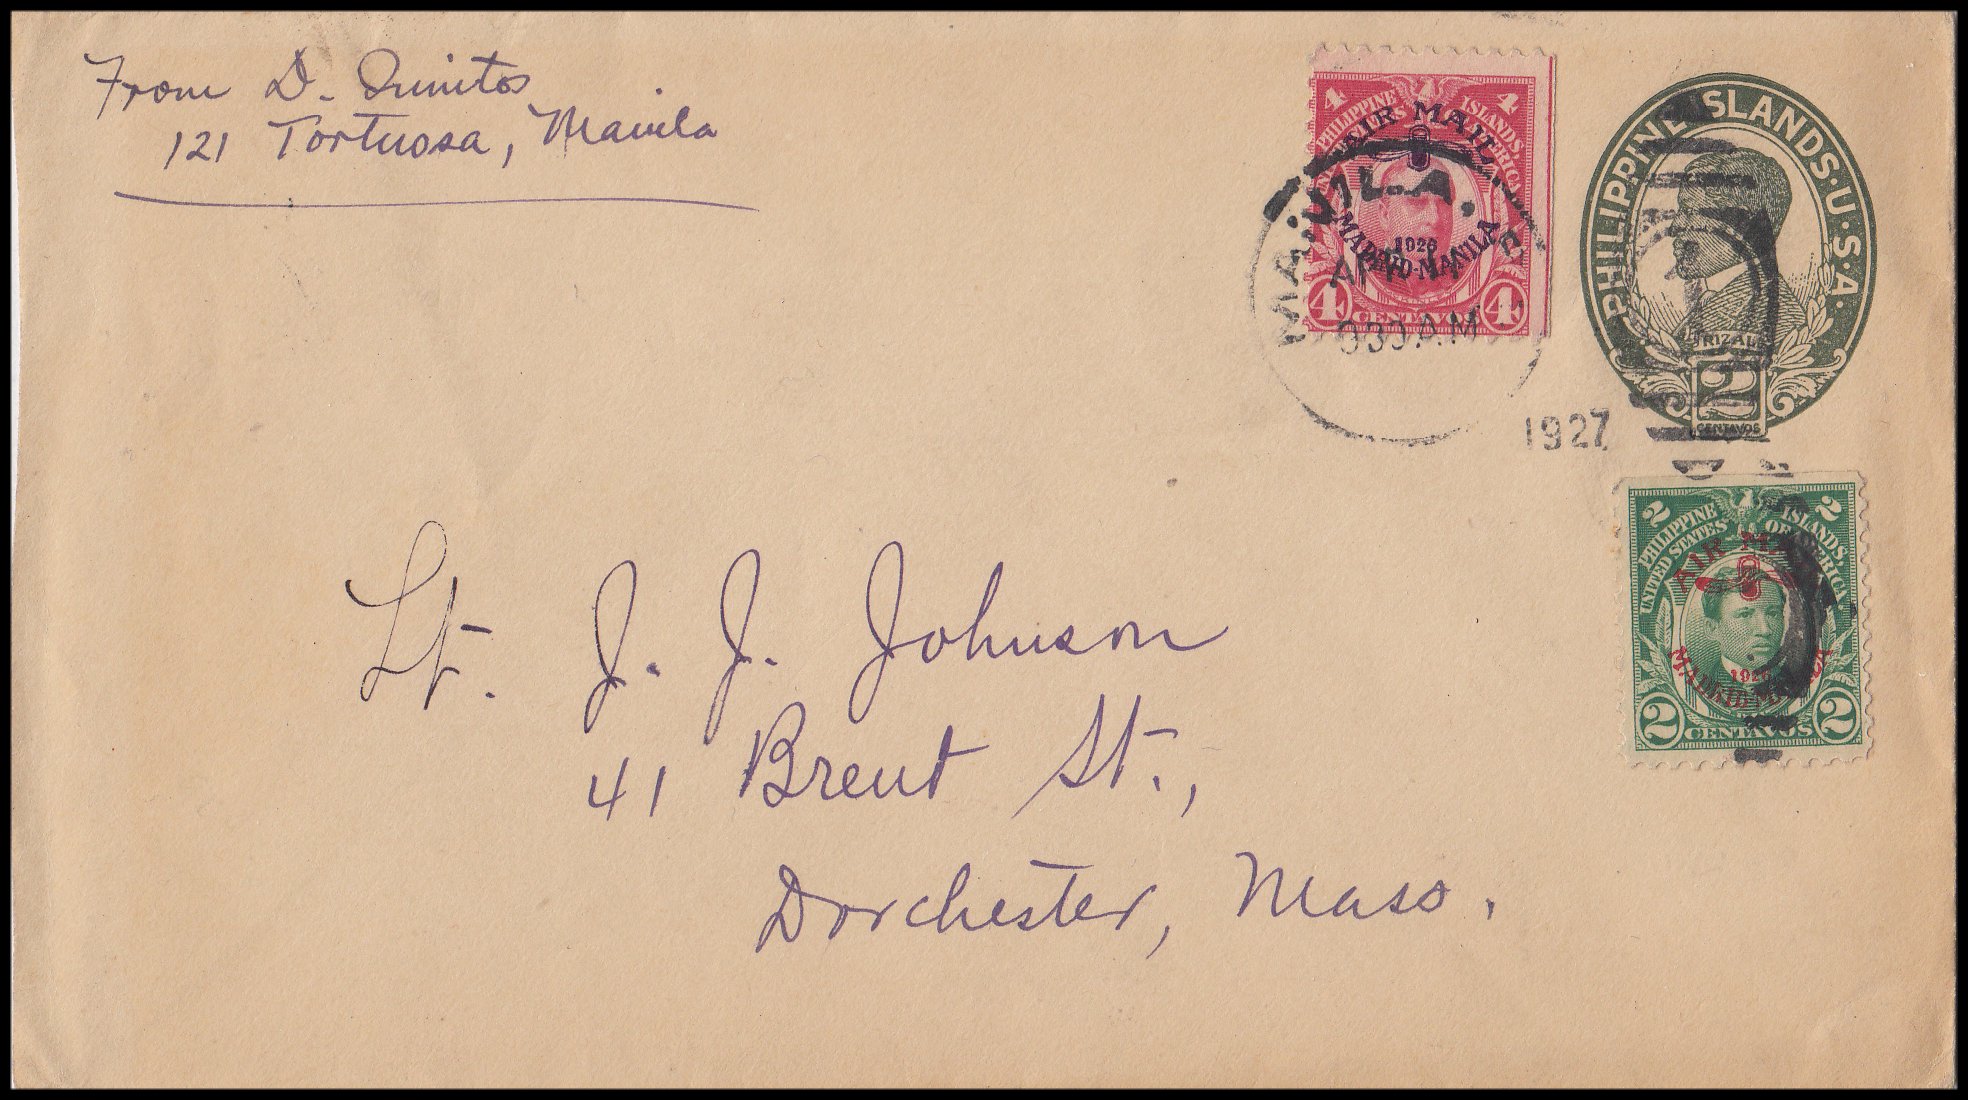 From D.
121 Tortuosa, Manila
4 4
PHILIPPINE ISLANDS
AMERICA
AIR MAIL
1926
MADRID-MANILA
4 CENTAVOS 4
MANILA,
930 A.M
1927
PHILIPPINE ISLANDS·U·S·A·
RIZAL
2
CENTAVOS
2 2
PHILIPPINE ISLANDS,
UNITED STATES OF AMERICA
AIR MA
1926
MADRID-
2 CENTAVOS 2
Lt. J. J. Johnson
41 Brent St.,
Dorchester, Mass.